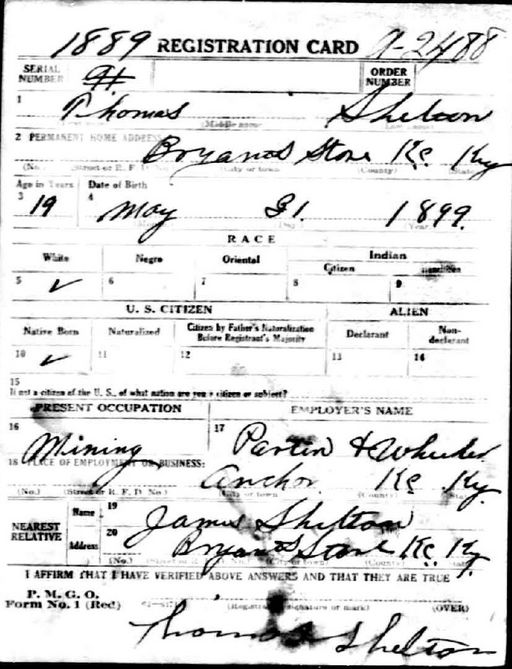 1889 REGISTRATION CARD A-2488
SERIAL NUMBER
ORDER NUMBER
1 Thomas Shelton
(Middle name)
2 PERMANENT HOME ADDRESS:
Bryants Store Ky
(No.) (Street or R. F. D. No.) (City or town) (County) (State)
Age in Years Date of Birth
3 19 4 May 31. 1899.
(Year)
RACE
White Negro Oriental Indian
Citizen Noncitizen
5 ✓ 6 7 8 9
U. S. CITIZEN ALIEN
Native Born Naturalized Citizen by Father's Naturalization Before Registrant's Majority Declarant Non-declarant
10 ✓ 11 12 13 14
15
If not a citizen of the U. S., of what nation are you a citizen or subject?
PRESENT OCCUPATION EMPLOYER'S NAME
16 Mining 17 Partin & Wheeler
18 PLACE OF EMPLOYMENT OR BUSINESS:
Anchor Ky.
(No.) (Street or R. F. D. No.) (City or town) (County) (State)
NEAREST RELATIVE
Name 19 James Shelton
Address 20 Bryants Store Ky
(No.) (Street or R. F. D. No.) (City or town) (County) (State)
I AFFIRM THAT I HAVE VERIFIED ABOVE ANSWERS AND THAT THEY ARE TRUE
P. M. G. O.
Form No. 1 (Red) (Registrant's signature or mark) (OVER)
Thomas Shelton